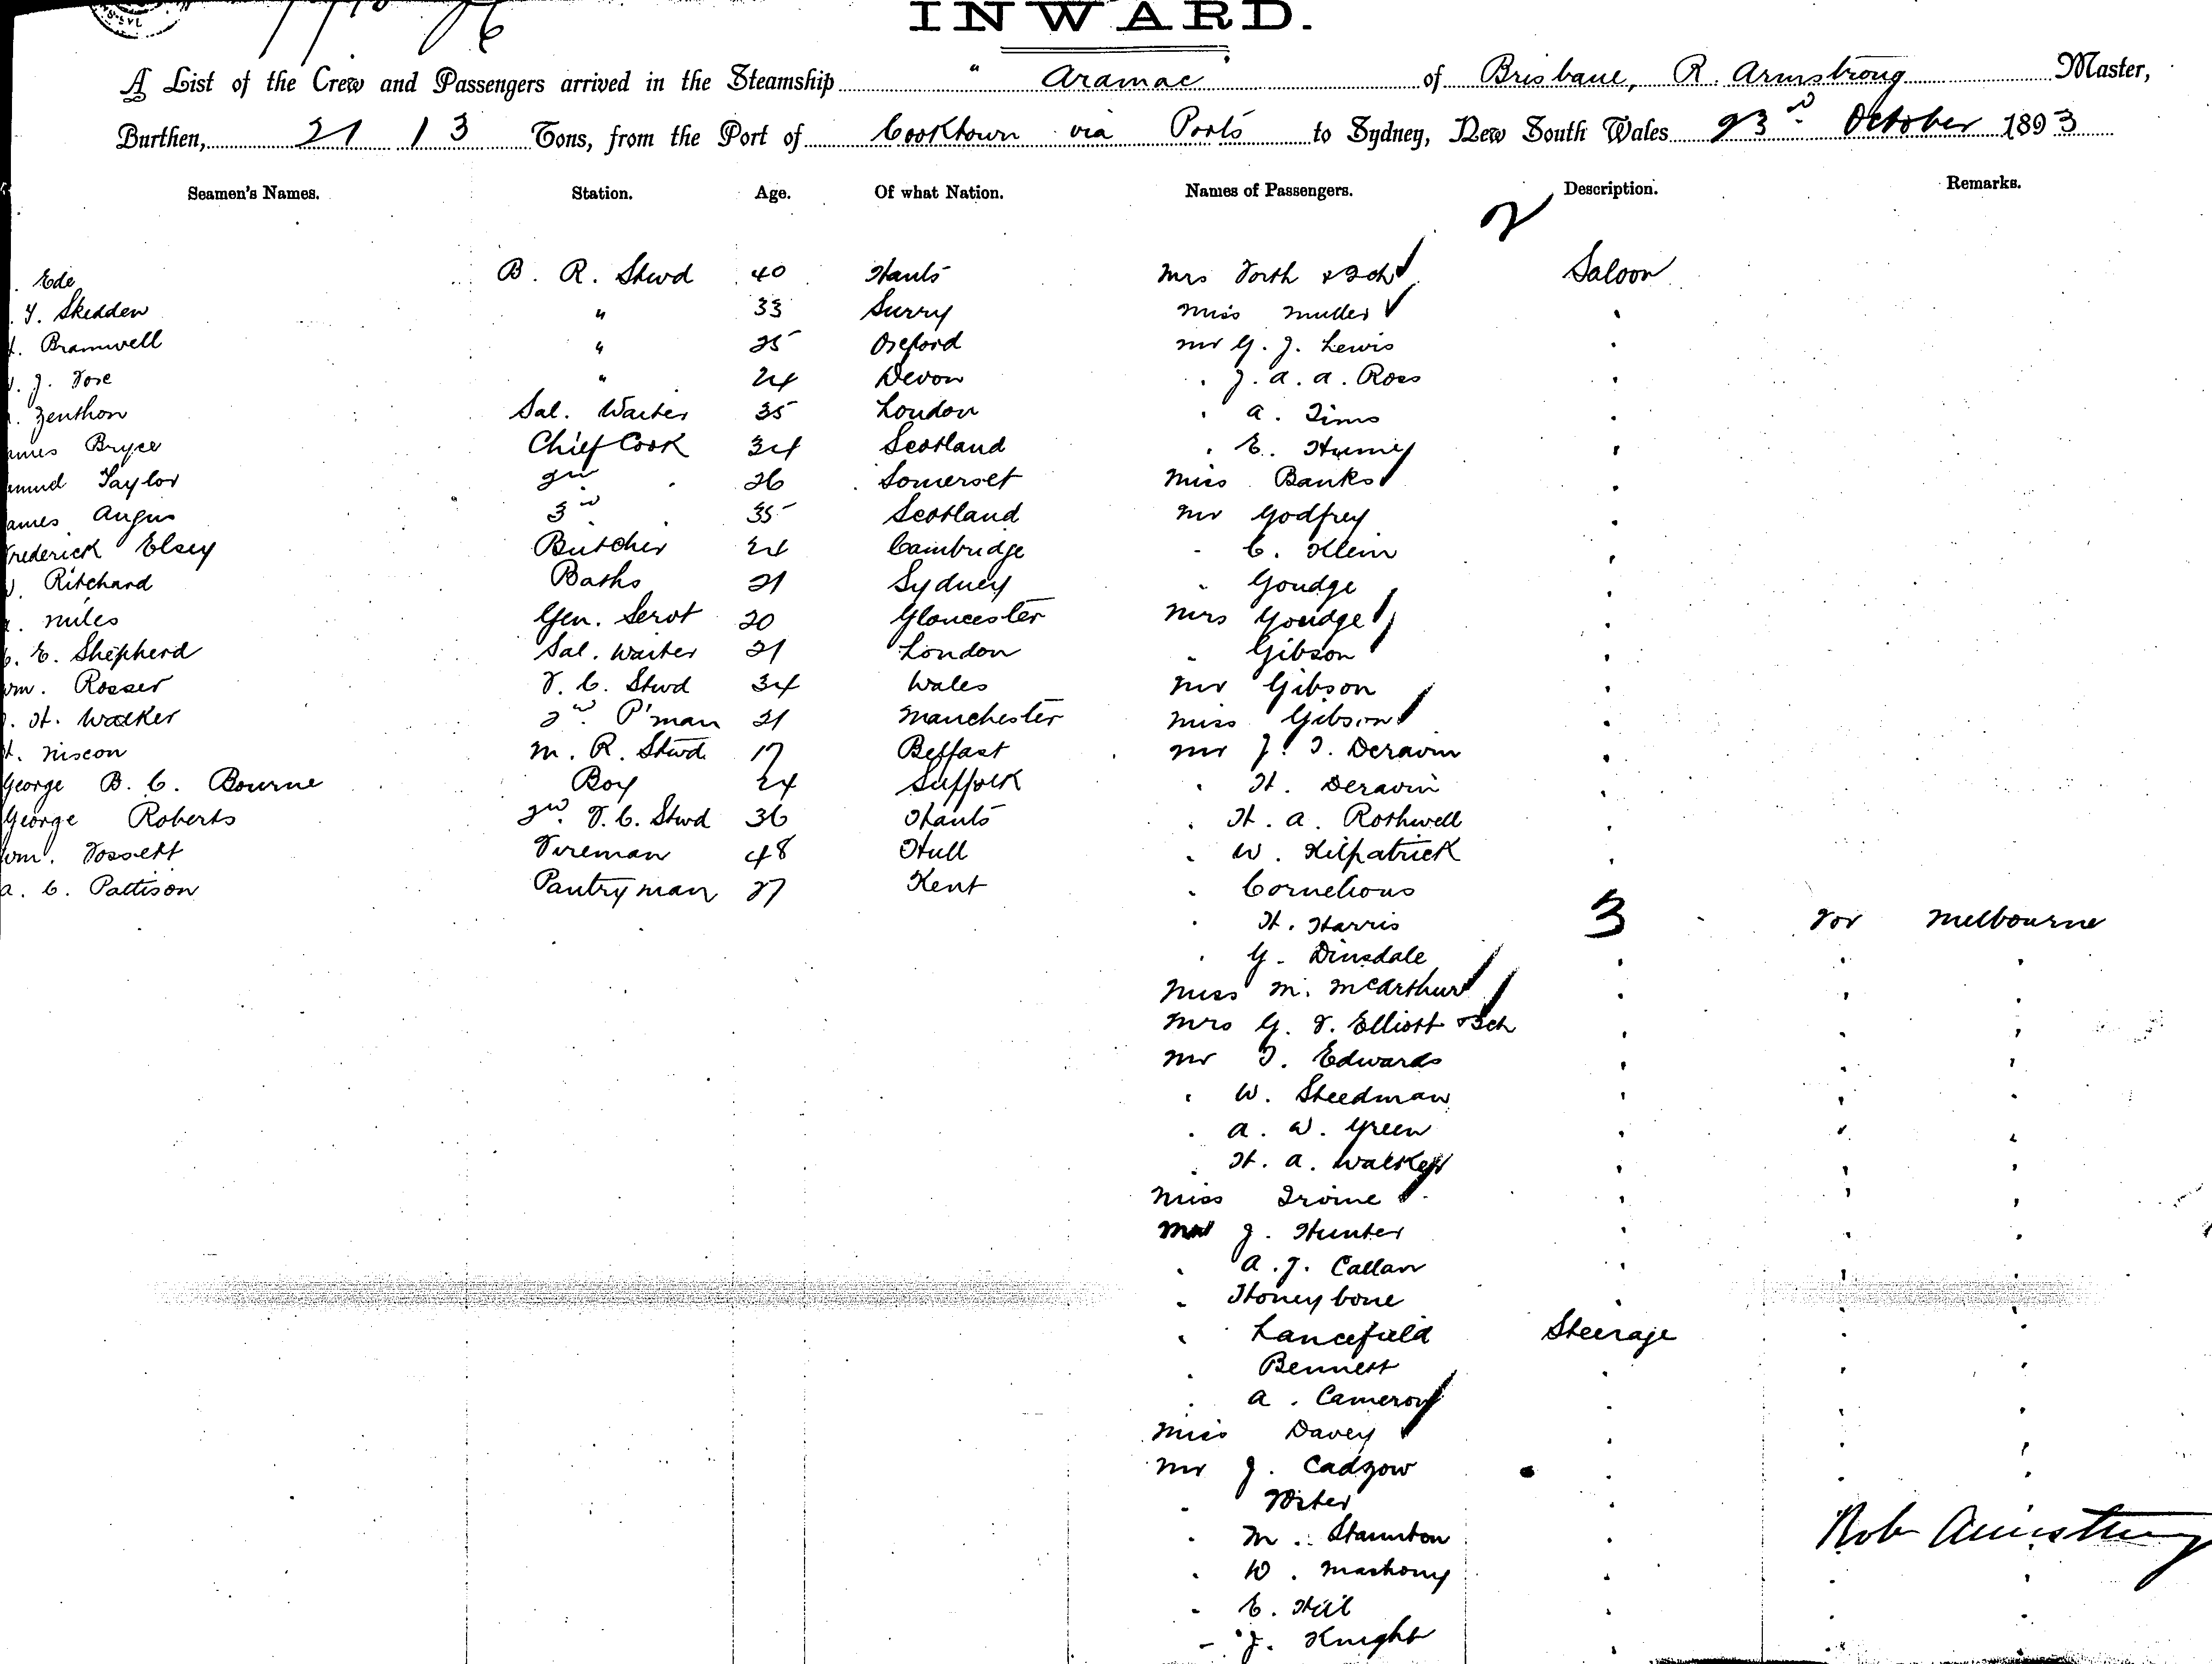 INWARD.
A List of the Crew and Passengers arrived in the Steamship " Aramac " of Brisbane, R. Armstrong Master,
Burthen, 21 13 Tons, from the Port of Cooktown via Ports to Sydney, New South Wales 23rd October 1893
Seamen's Names. Station. Age. Of what Nation. Names of Passengers. Description. Remarks.
2
Ede B. R. Stwd 40 Hants Mrs Forth & 2ch Saloon
Skedden " 33 Surry Miss Muller
Bramwell " 25 Oxford Mr G. J. Lewis
J. Fose " 24 Devon J. A. A. Ross
Zenthon Sal. Waiter 35 London A. Tims
ames Bryce Chief Cook 34 Scotland E. Hurney
Taylor 2nd 26 Somerset Miss Banks
ames Angus 3rd 35 Scotland Mr Godfrey
Frederick Elsey Butcher 24 Cambridge C. Klein
Ritchard Baths 21 Sydney Goudge
Miles Gen. Servt 20 Gloucester Mrs Goudge
E. Shepherd Sal. Waiter 21 London Gibson
Wm. Rosser F. C. Stwd 34 Wales Mr Gibson
H. Walker 2nd P'man 21 Manchester Miss Gibson
Niscon M. R. Stwd 17 Belfast Mr J. T. Deravin
George B. C. Bourne Boy 24 Suffolk H. Deravin
George Roberts 2nd F. C. Stwd 36 Hants H. A. Rothwell
Wm. Fossett Fireman 48 Hull W. Kilpatrick
A. C. Pattison Pantryman 27 Kent Cornelious
H. Harris 3 For Melbourne
G. Dinsdale
Miss M. McArthur
Mrs G. F. Elliott & 3ch
Mr T. Edwards
W. Steedman
A. W. Green
H. A. Walker
Miss Irvine
Mr J. Hunter
A. J. Callan
Honeybone
Lancefield Steerage
Bennett
A. Cameron
Miss Davey
Mr J. Cadzow
Foster
M. Staunton
W.
E. Hill
J. Knight
Rob Armstrong